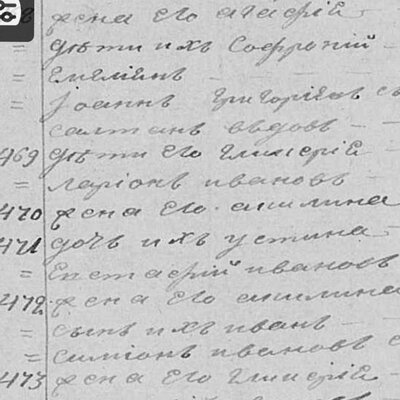 жена его агафiй -
= дѣти ихъ Софронiй -
= Емелiянъ
= Iоаннъ Григорiевъ с
салтанъ вдовъ -
469 дѣти его гликерiй -
= ларiонъ ивановъ -
470 жена его акилина
471 дочь ихъ устина -
= Евстафiй ивановъ
472 жена его акилина
= сынъ ихъ иванъ -
= симiонъ ивановъ с
473 жена его гликерiй -